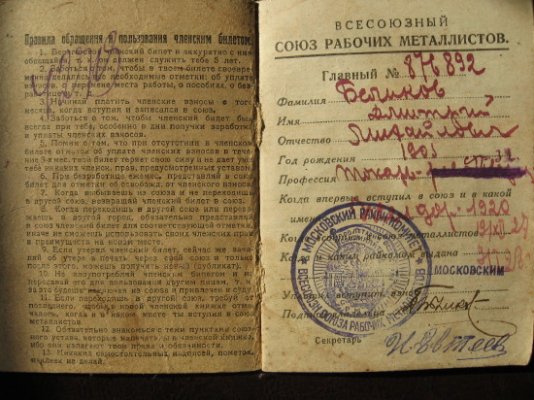 Правила обращения и пользования членским билетом.
1. Береги членский билет и аккуратно с ним
обращайся. Он должен служить тебе 5 лет.
2. Заботься о том, чтобы в твоем билете своевре-
менно делались необходимые отметки: об уплате
взносов, о перемене места работы, о пособии, о без-
работице
3. Начинай платить членские взносы с того
месяца, когда вступил и записался в союз.
4. Заботься о том, чтобы членский билет был
всегда при тебе, особенно в дни получки заработка
и уплаты членских взносов.
5. Помни о том, что при отсутствии в членском
билете отметок об уплате членских взносов в тече-
ние 3-х мес. твой билет теряет свою силу и не дает уже
тебе никаких членск. прав, предусмотренных уставом.
6. При безработице немедл. представляй в союз
билет для отметки об освобожд. от членского взноса.
7. Когда выбываешь из союза и не переходишь
в другой союз, возвращай членский билет в союз.
8. Когда переходишь в другой союз или переез-
жаешь в другой город, обязательно представляй
в союз членский билет для соответствующей отметки,
иначе не сможешь использовать своих членских прав
и преимуществ на новом месте.
9. Если утерял членский билет, сейчас же заяви
об утере в печать через свой союз и только
после этого, можешь получить новый (дубликат).
10. Не злоупотребляй членским билетом и не
передавай его для пользования другим лицам, т. к.
за это будешь исключен из союза и привлечен к суду.
11. Если переходишь в другой союз, требуй от
последнего, чтобы в новой членской книжке отме-
чалось, когда и в каком месте ты вступил в союз
металлистов.
12. Обязательно знакомься с теми пунктами союз-
ного устава, которые напечатаны в членской книжке,
ибо они излагают твои права и обязанности.
13. Никаких самостоятельных надписей, пометок,
на нем не делай.
ВСЕСОЮЗНЫЙ
СОЮЗ РАБОЧИХ МЕТАЛЛИСТОВ.
Главный № 876892
Фамилия Бычков
Имя Дмитрий
Отчество Михайлович
Год рождения 1901
Профессия токарь
Когда впервые вступил в союз и в какой
именно 1920
Когда металлистов
Кем и каким райкомом выдана
МОСКОВСКИМ
МОСКОВСКИЙ РАЙКОМ
ВСЕСОЮЗ СОЮЗА РАБОЧИХ МЕТАЛЛИСТОВ
Уплатил вступит. взнос
Подпись
Секретарь